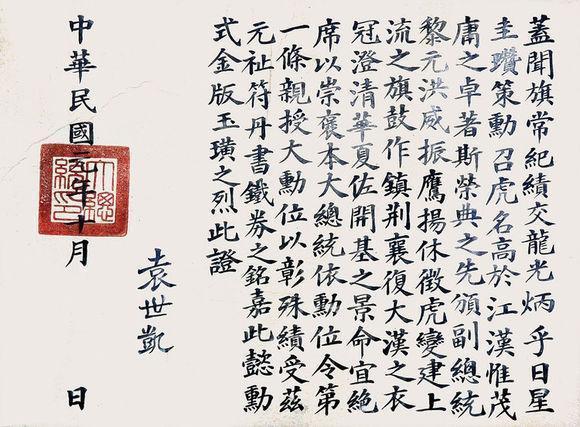 蓋聞旗常紀績交龍光炳乎日星
圭瓚策勳召虎名高於江漢惟茂
庸之卓著斯榮典之先頒副總統
黎元洪威振鷹揚休徵虎變建上
流之旗鼓作鎮荆襄復大漢之衣
冠澄清華夏佐開基之景命宜絶
席以崇襃本大總統依勳位令第
一條親授大勳位以彰殊績受茲
元祉符丹書鐵券之銘嘉此懿勳
式金版玉璜之烈此證
袁世凱
中華民國元年十月 日
大總統印